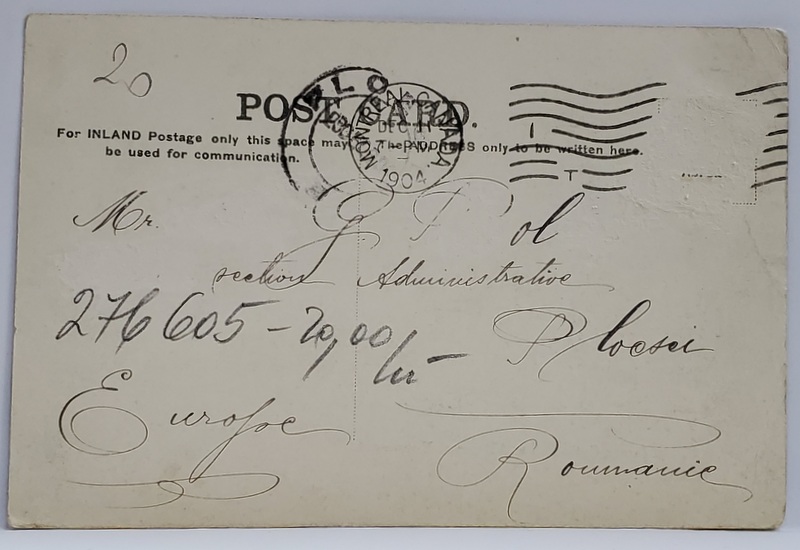 20
POST CARD.
For INLAND Postage only this space may The ADDRESS only to be written here.
be used for communication.
PLO
MONTREAL CANADA
DEC 21
7 - PM
1904
T
Mr. G Pol
section Administrative
276605 - 20,00 lei
Ploesci
Europe
Roumanie